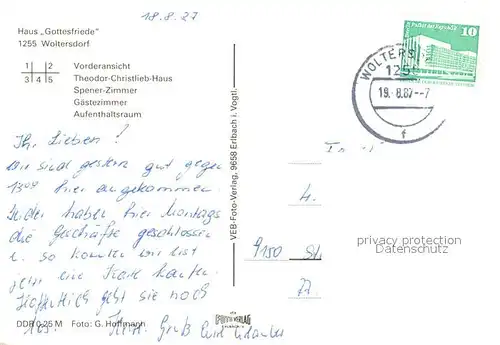 18.8.87
Haus „Gottesfriede"
1255 Woltersdorf
1 2
3 4 5
Vorderansicht
Theodor-Christlieb-Haus
Spener-Zimmer
Gästezimmer
Aufenthaltsraum
Ihr Lieben!
Wir sind gestern gut gegen
13 00 hier angekommen.
Leider haben hier Montags
die Geschäfte geschlossen
u. so konnten wir erst
jetzt eine Karte kaufen.
Hoffentlich geht sie noch
Herzl. Gruß
DDR 0,25 M Foto: G. Hoffmann
VEB-Foto-Verlag, 9658 Erlbach i. Vogtl.
10
WOLTERS
125
19.-8.87--7
f
4.
9150 St.
privacy protection
Datenschutz